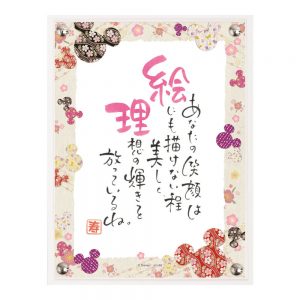 絵理
あなたの笑顔は
絵にも描けない程
美しく
理想の輝きを
放っているね。
寿